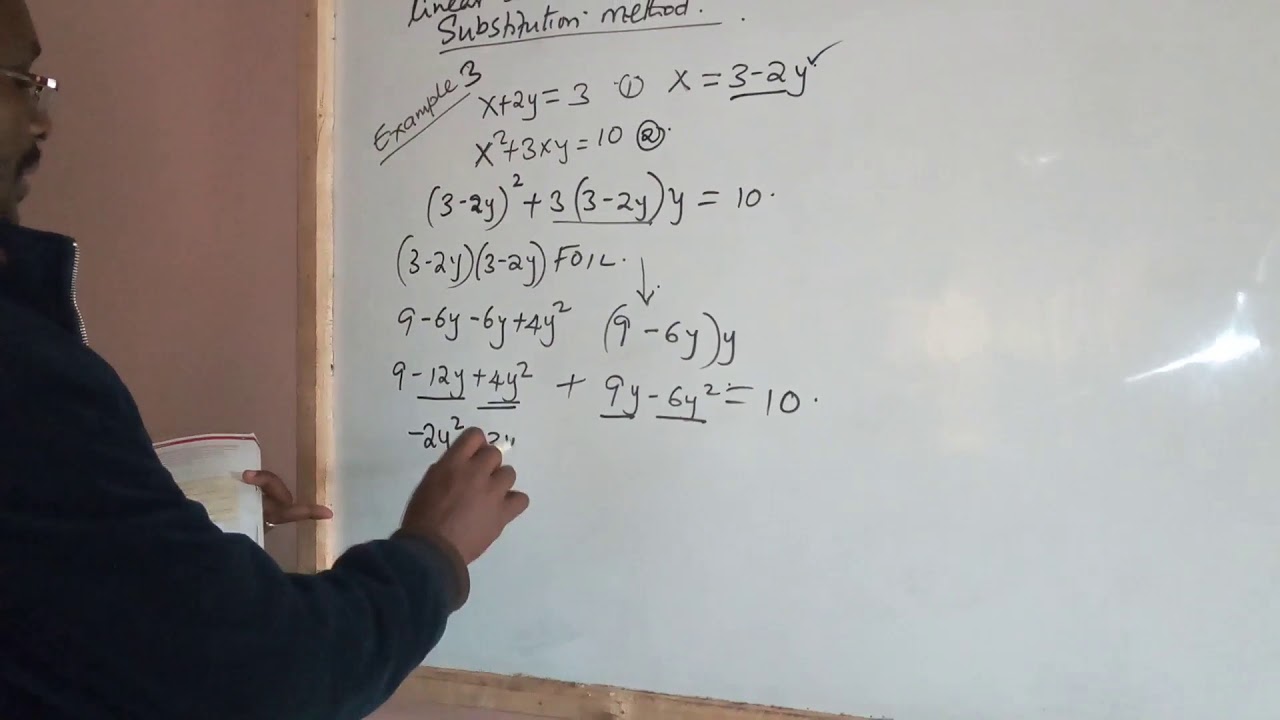 linear
Substitution method.
Example 3
x+2y=3 ① x=3-2y ✓
x²+3xy=10 ②.
(3-2y)²+3(3-2y)y=10.
(3-2y)(3-2y) FOIL. ↓
9-6y-6y+4y² (9-6y)y
9-12y+4y² + 9y-6y²=10.
-2y²